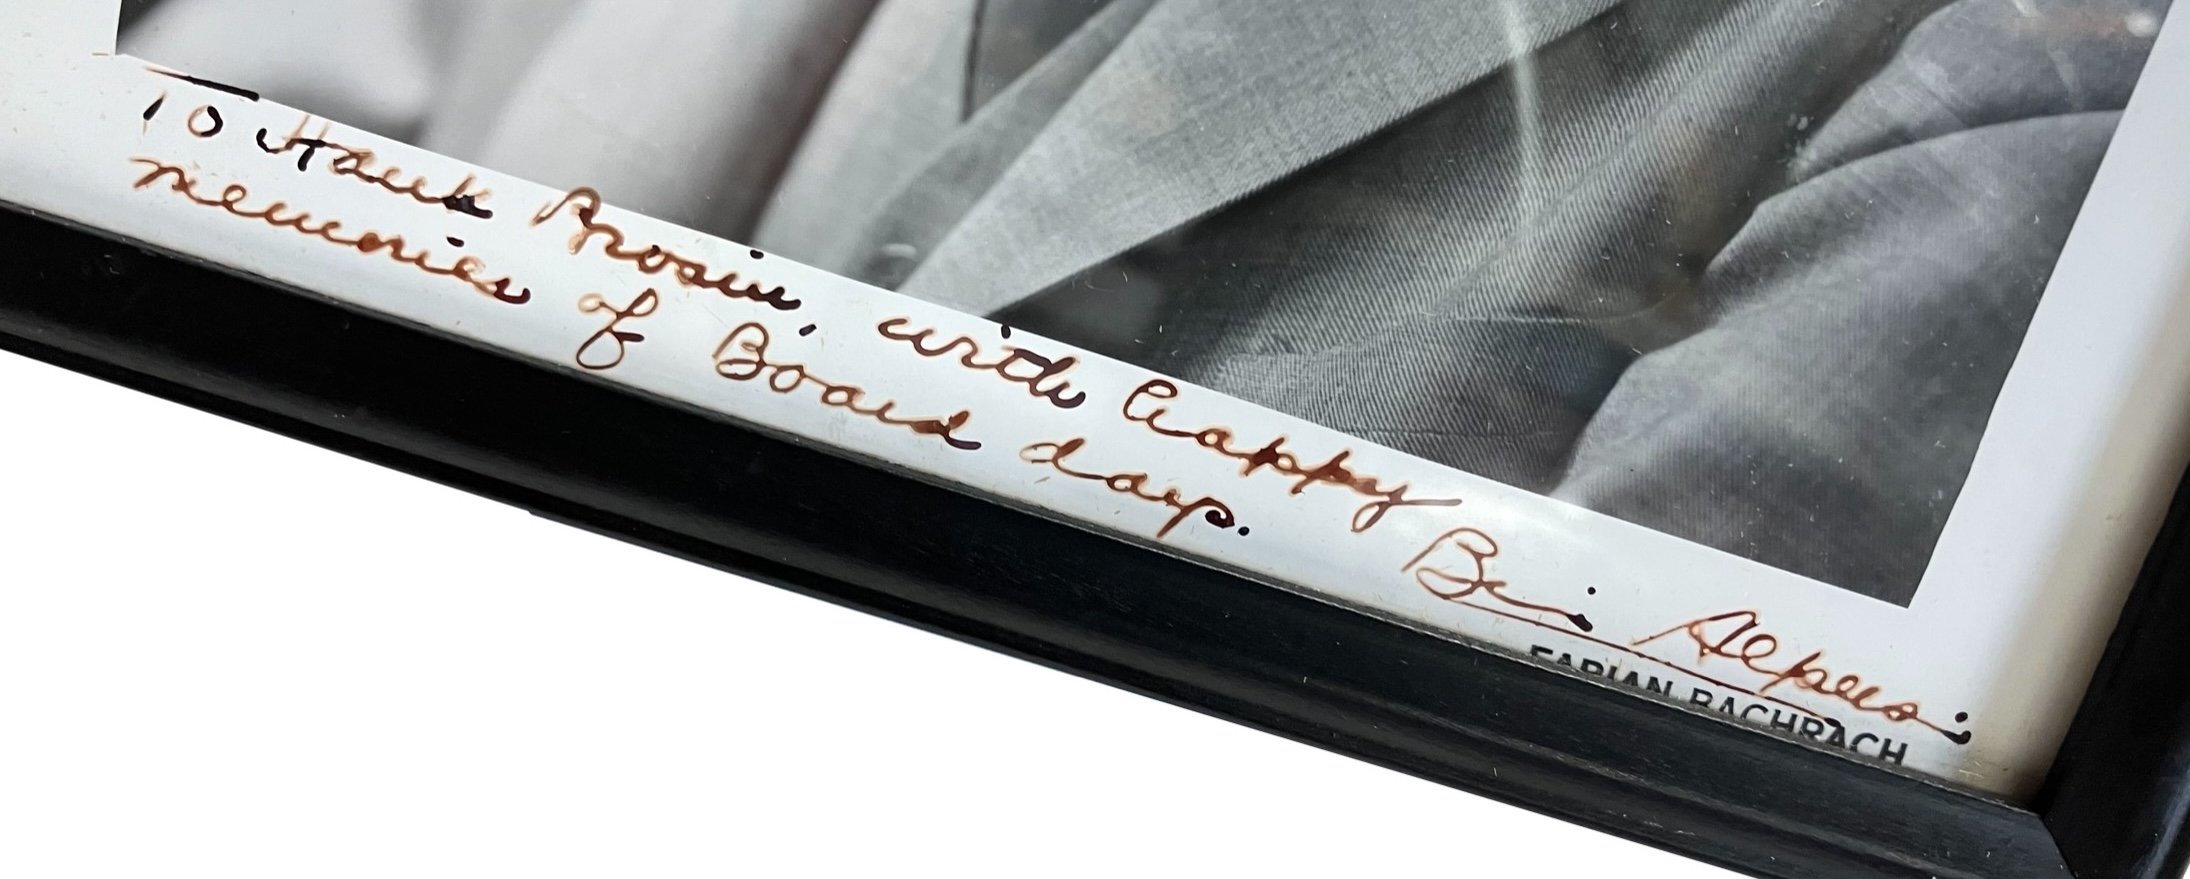 To Hank Brosin, with happy
memories of Board days.
FABIAN BACHRACH